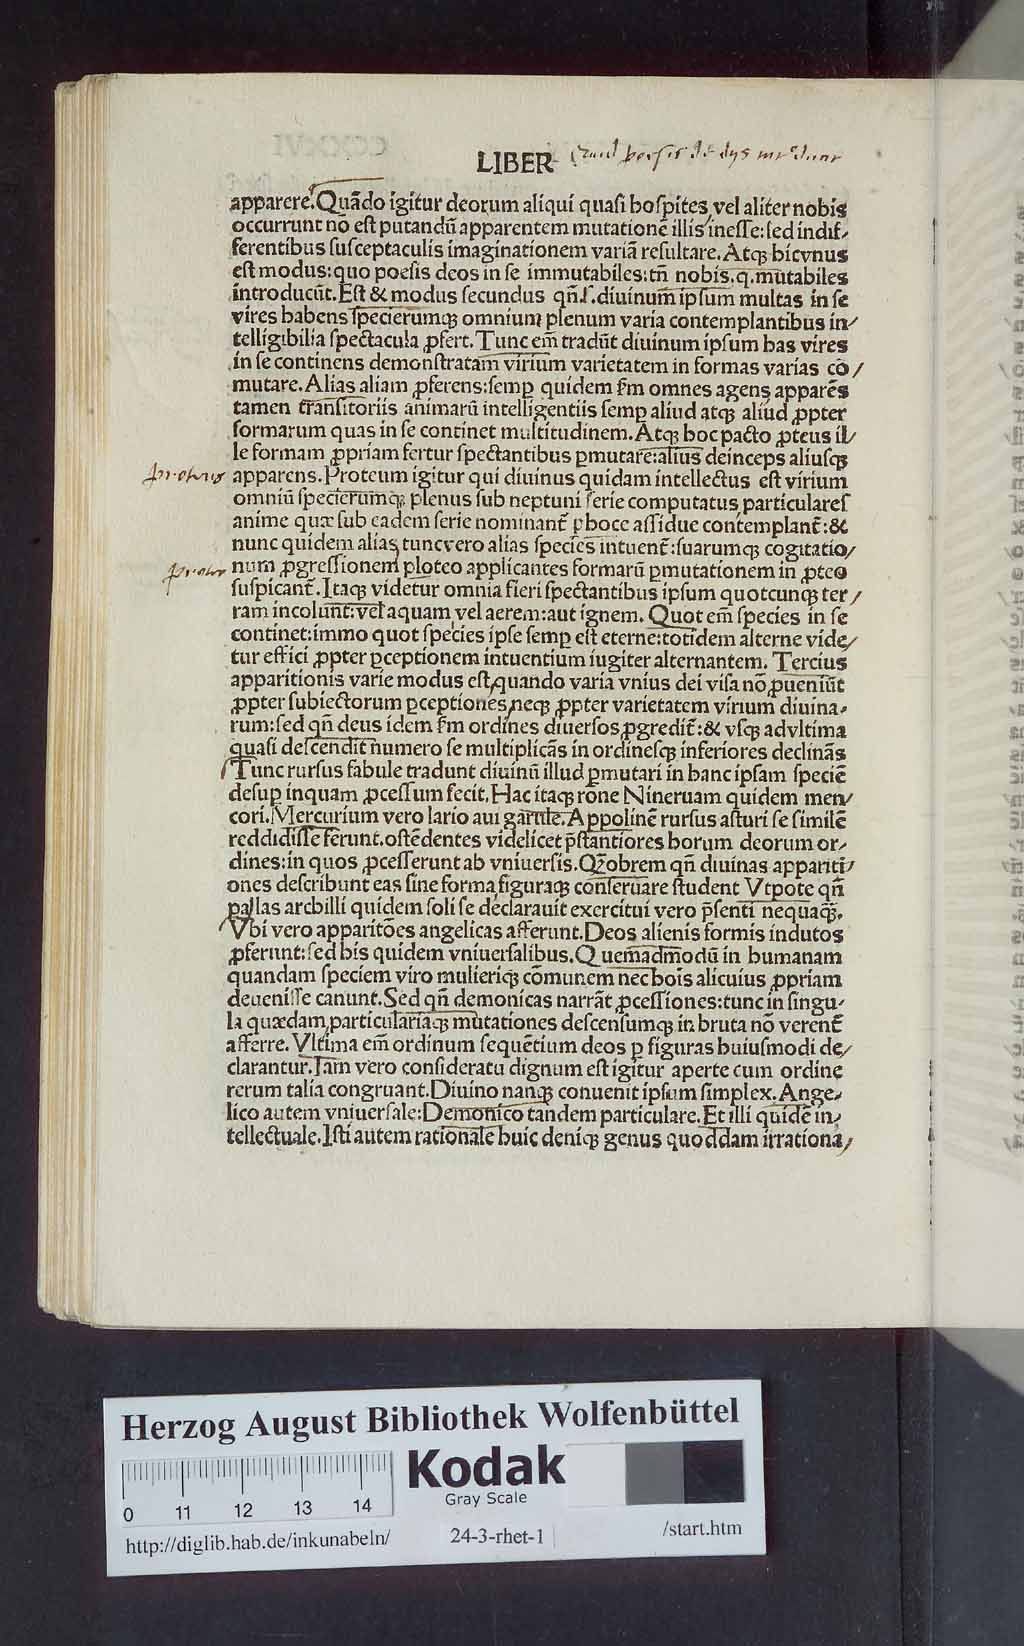 LIBER
apparere. Quãdo igitur deorum aliqui quasi hospites vel aliter nobis
occurrunt nõ est putandũ apparentem mutationẽ illis inesse: sed indif⸗
ferentibus susceptaculis imaginationem variã resultare. Atqꝫ hicvnus
est modus: quo poesis deos in se immutabiles: tñ nobis. q. mutabiles
introducũt. Est & modus secundus qñ .s. diuinum ipsum multas in se
vires habens specierumqꝫ omnium plenum varia contemplantibus in⸗
telligibilia spectacula ꝓfert. Tunc em̃ tradũt diuinum ipsum has vires
in se continens demonstratam virium varietatem in formas varias cõ⸗
mutare. Alias aliam ꝓferens: semꝑ quidem ẜm omnes agens apparẽs
tamen transitoriis animarũ intelligentiis semꝑ aliud atqꝫ aliud ꝓpter
formarum quas in se continet multitudinem. Atqꝫ hoc pacto ꝓteus il⸗
le formam ꝓpriam fertur spectantibus ꝑmutare: alius deinceps aliusqꝫ
proteus
apparens. Proteum igitur qui diuinus quidam intellectus est virium
omniũ specierumqꝫ plenus sub neptuni serie computatus particulares
anime quæ sub eadem serie nominant̃ ꝑ hoce assidue contemplant̃: &
nunc quidem alias tuncvero alias species intuent̃: suarumqꝫ cogitatio⸗
num ꝓgressionem ploteo applicantes formarũ ꝑmutationem in ꝓteo
suspicant̃. Itaqꝫ videtur omnia fieri spectantibus ipsum quotcunqꝫ ter⸗
ram incolunt: vel aquam vel aerem: aut ignem. Quot em̃ species in se
continet: immo quot species ipse semꝑ est eterne: totidem alterne vide⸗
tur effici ꝓpter ꝑceptionem intuentium iugiter alternantem. Tercius
apparitionis varie modus est, quando varia vnius dei visa nõ ꝓueniũt
ꝓpter subiectorum ꝑceptiones neqꝫ ꝓpter varietatem virium diuina⸗
rum: sed qñ deus idem ẜm ordines diuersos ꝓgredit̃: & vsqꝫ advltima
quasi descendit numero se multiplicãs in ordinesqꝫ inferiores declinãs
Tunc rursus fabule tradunt diuinũ illud ꝑmutari in hanc ipsam speciẽ
desuꝑ inquam ꝓcessum fecit. Hac itaqꝫ rõne Nineruam quidem men⸗
cori. Mercurium vero lario aui garrule. Appolinẽ rursus asturi se similẽ
reddidisse ferunt. ostẽdentes videlicet p̃stantiores horum deorum or⸗
dines: in quos ꝓcesserunt ab vniuersis. Qꝫobrem qñ diuinas appariti⸗
ones describunt eas sine forma figuraqꝫ conseruare student Vtpote qñ
pallas archilli quidem soli se declarauit exercitui vero p̃senti nequaqꝫ.
Vbi vero apparitões angelicas afferunt. Deos alienis formis indutos
ꝓferunt: sed his quidem vniuersalibus. Quemadmodũ in humanam
quandam speciem viro mulieriqꝫ cõmunem nec hois alicuius ꝓpriam
deuenisse canunt. Sed qñ demonicas narrãt ꝓcessiones: tunc in singu⸗
la quædam particulariaqꝫ mutationes descensumqꝫ in bruta nõ verent̃
afferre. Vltima em̃ ordinum sequẽtium deos ꝑ figuras huiusmodi de⸗
clarantur. Iam vero consideratu dignum est igitur aperte cum ordine
rerum talia congruant. Diuino nanqꝫ conuenit ipsum simplex. Ange⸗
lico autem vniuersale: Demonico tandem particulare. Et illi quidẽ in⸗
tellectuale. Isti autem rationale huic deniqꝫ genus quoddam irrationa⸗
Herzog August Bibliothek Wolfenbüttel
Kodak
Gray Scale
0 11 12 13 14
http://diglib.hab.de/inkunabeln/
24-3-rhet-1
/start.htm